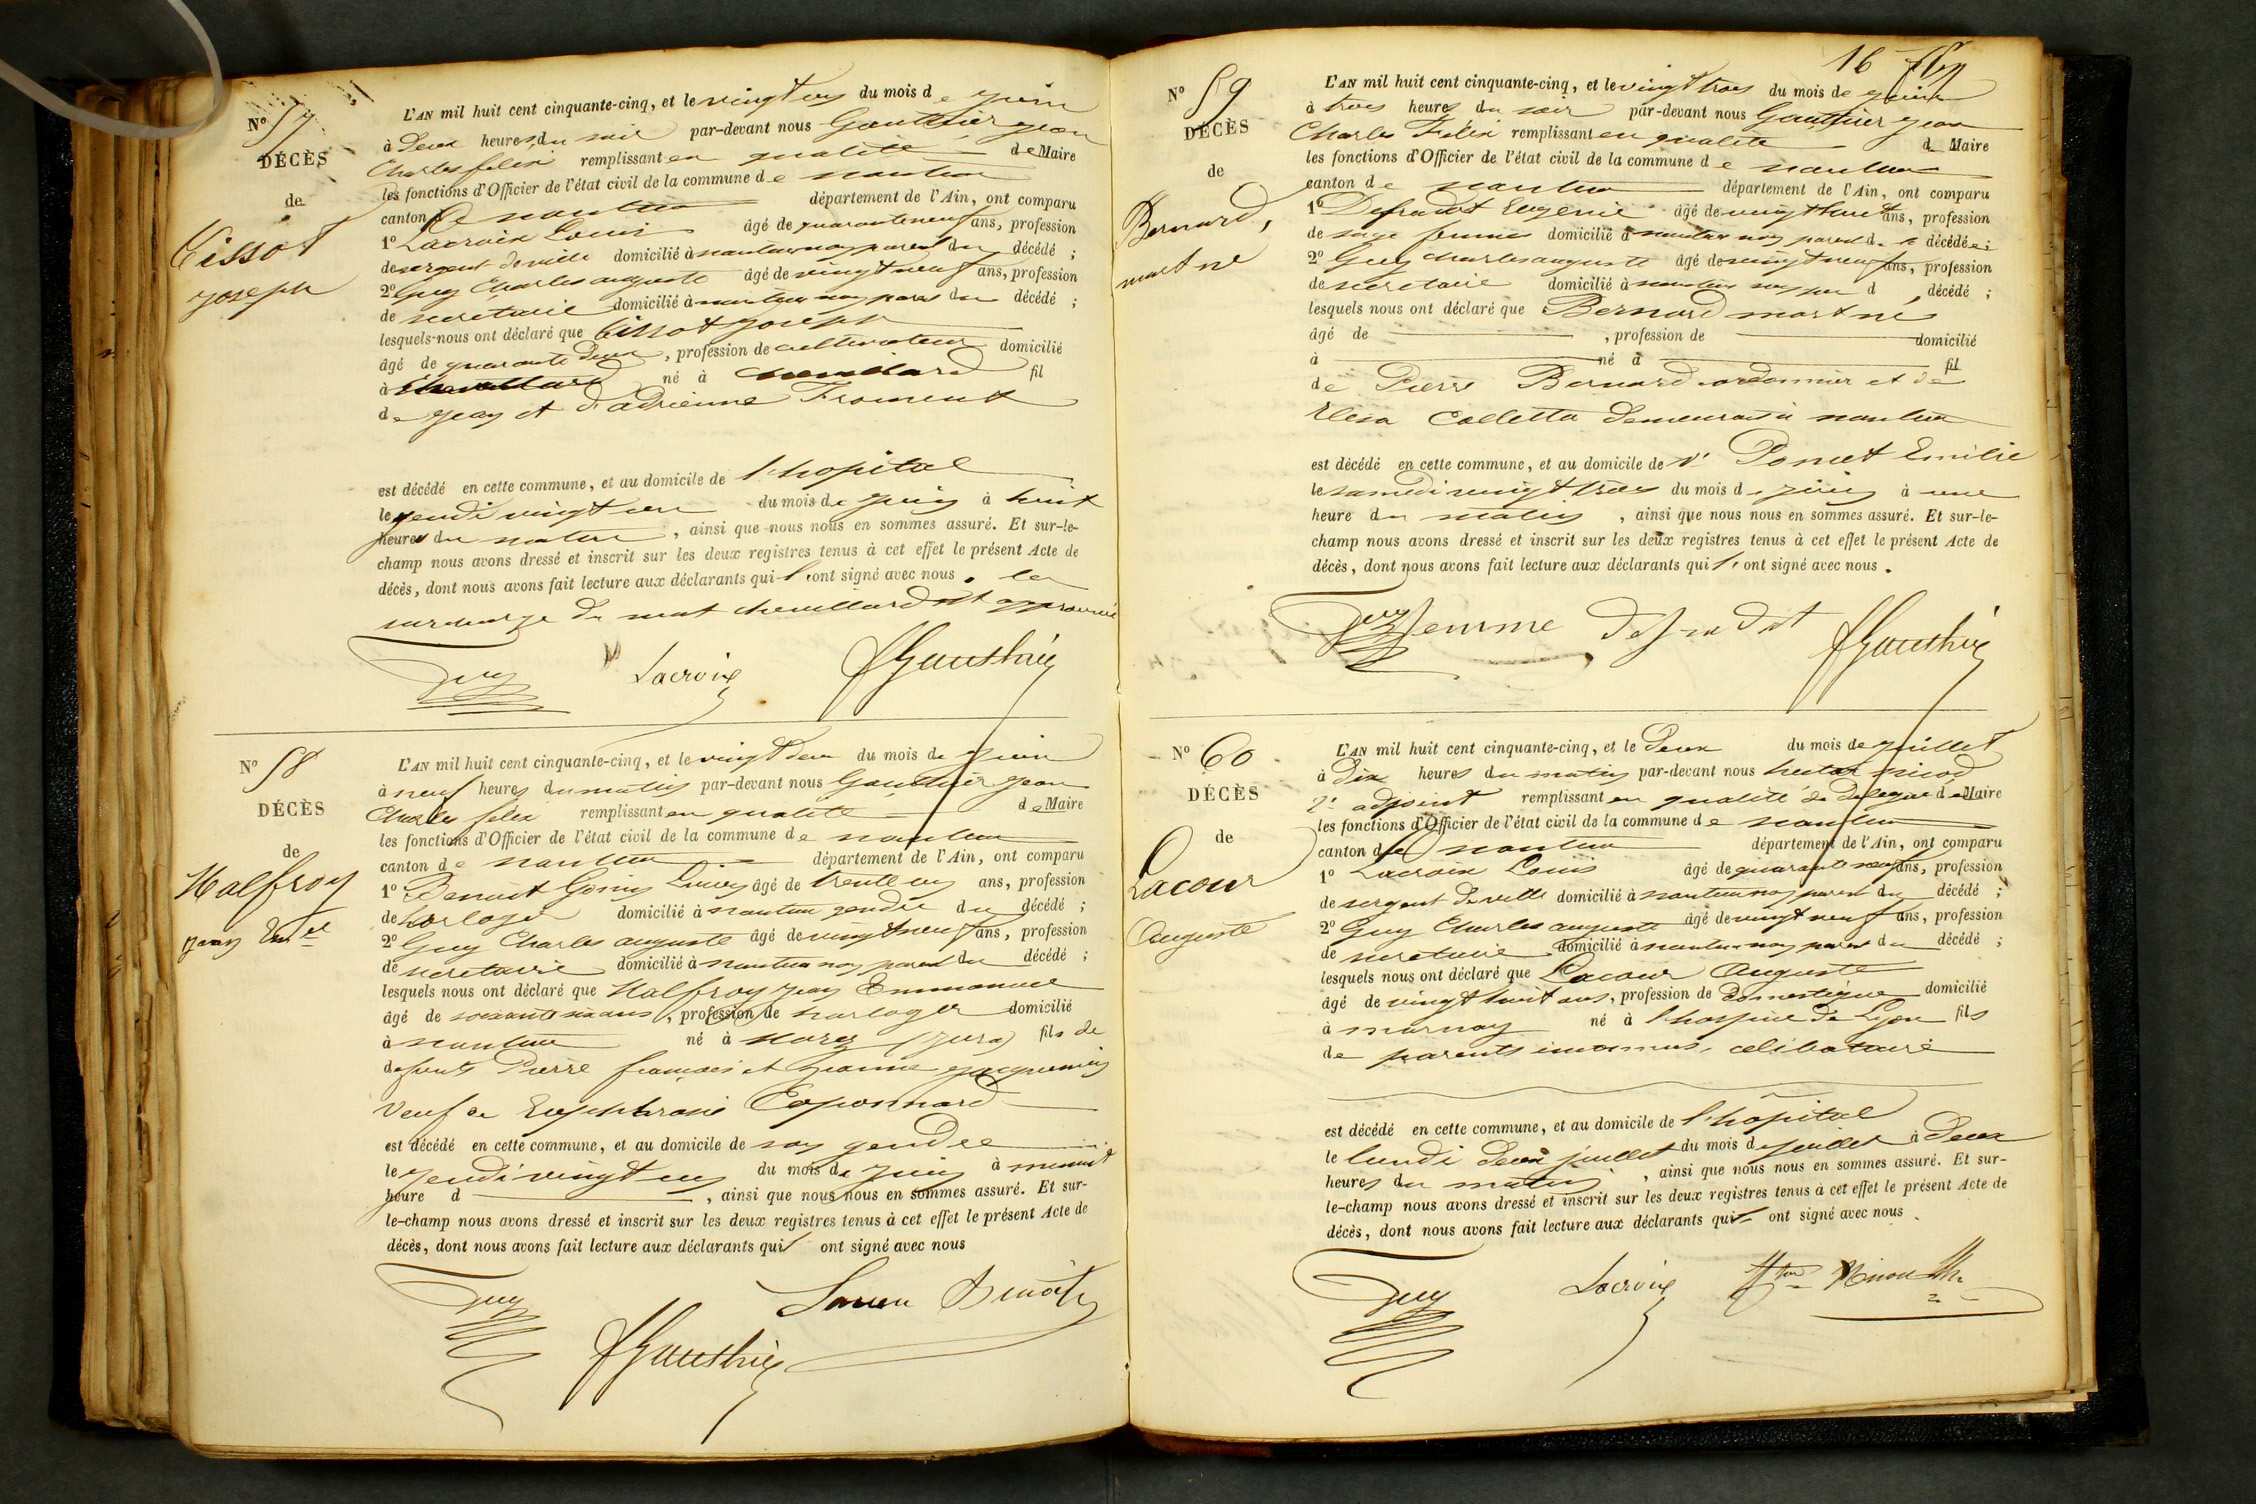 N° 57
DÉCÈS
de
Tissot
joseph
L'AN mil huit cent cinquante-cinq, et le vingt un du mois de juin
à deux heures du soir par-devant nous Gauthier jean
Charles felix remplissant en qualité de Maire
les fonctions d'Officier de l'état civil de la commune de nantua
canton de nantua département de l'Ain, ont comparu
1° Lacroix Louis âgé de quarante neuf ans, profession
de sergent de ville domicilié à nantua non parent du décédé ;
2° Guy Charles auguste âgé de vingt neuf ans, profession
de secretaire domicilié à nantua non parent du décédé ;
lesquels nous ont déclaré que Tissot joseph
âgé de quarante deux, profession de cultivateur domicilié
à chevillard né à chevillard fil
de jean et d'adrienne Froment
est décédé en cette commune, et au domicile de l'hopital
le jeudi vingt un du mois de juin à huit
heures du matin, ainsi que nous nous en sommes assuré. Et sur-le-
champ nous avons dressé et inscrit sur les deux registres tenus à cet effet le présent Acte de
décès, dont nous avons fait lecture aux déclarants qui l'ont signé avec nous. la
surcharge du mot chevillard est approuvée
Guy Lacroix fGauthier
N° 58
DÉCÈS
de
Malfroy
jean Em.el
L'AN mil huit cent cinquante-cinq, et le vingt deux du mois de juin
à neuf heures du matin par-devant nous Gauthier jean
Charles felix remplissant en qualité de Maire
les fonctions d'Officier de l'état civil de la commune de nantua
canton de nantua département de l'Ain, ont comparu
1° Benoit âgé de trente un ans, profession
de horloger domicilié à nantua gendre du décédé ;
2° Guy Charles auguste âgé de vingt neuf ans, profession
de secretaire domicilié à nantua non parent du décédé ;
lesquels nous ont déclaré que Malfroy jean Emmanuel
âgé de soixante six ans, profession de horloger domicilié
à nantua né à Morez (jura) fils de
defunts Pierre françois et jeanne jacquemin
veuf de Euphrasie Caponnard
est décédé en cette commune, et au domicile de son gendre
le jeudi vingt un du mois de juin à minuit
heure d , ainsi que nous nous en sommes assuré. Et sur-
le-champ nous avons dressé et inscrit sur les deux registres tenus à cet effet le présent Acte de
décès, dont nous avons fait lecture aux déclarants qui ont signé avec nous
Guy Benoit
fGauthier
16
N° 59
DÉCÈS
de
Bernard,
mort né
L'AN mil huit cent cinquante-cinq, et le vingt trois du mois de juin
à trois heures du soir par-devant nous Gauthier jean
Charles Felix remplissant en qualité de Maire
les fonctions d'Officier de l'état civil de la commune de nantua
canton de nantua département de l'Ain, ont comparu
1° Defradat Eugenie âgé de vingt huit ans, profession
de sage femme domicilié à nantua non parent de décédé ;
2° Guy Charles auguste âgé de vingt neuf ans, profession
de secretaire domicilié à nantua non par d décédé ;
lesquels nous ont déclaré que Bernard mort né
âgé de , profession de domicilié
à né à fil
de Pierre Bernard cordonnier et de
Elisa Colletta demeurant à nantua
est décédé en cette commune, et au domicile de Poncet Emilie
le samedi vingt trois du mois de juin à une
heure du matin, ainsi que nous nous en sommes assuré. Et sur-le-
champ nous avons dressé et inscrit sur les deux registres tenus à cet effet le présent Acte de
décès, dont nous avons fait lecture aux déclarants qui l'ont signé avec nous.
Guy femme defradat fGauthier
N° 60
DÉCÈS
de
Lacour
Auguste
L'AN mil huit cent cinquante-cinq, et le deux du mois de juillet
à dix heures du matin par-devant nous hector nicod
2e adjoint remplissant en qualité de délégué de Maire
les fonctions d'Officier de l'état civil de la commune de nantua
canton de nantua département de l'Ain, ont comparu
1° Lacroix Louis âgé de quarante neuf ans, profession
de sergent de ville domicilié à nantua non parent du décédé ;
2° Guy Charles auguste âgé de vingt neuf ans, profession
de secretaire domicilié à nantua non parent du décédé ;
lesquels nous ont déclaré que Lacour Auguste
âgé de vingt huit ans, profession de domestique domicilié
à marnay né à l'hospice de Lyon fils
de parents inconnus, célibataire
est décédé en cette commune, et au domicile de l'hopital
le lundi deux juillet du mois de juillet à deux
heures du matin, ainsi que nous nous en sommes assuré. Et sur-
le-champ nous avons dressé et inscrit sur les deux registres tenus à cet effet le présent Acte de
décès, dont nous avons fait lecture aux déclarants qui ont signé avec nous.
Guy Lacroix